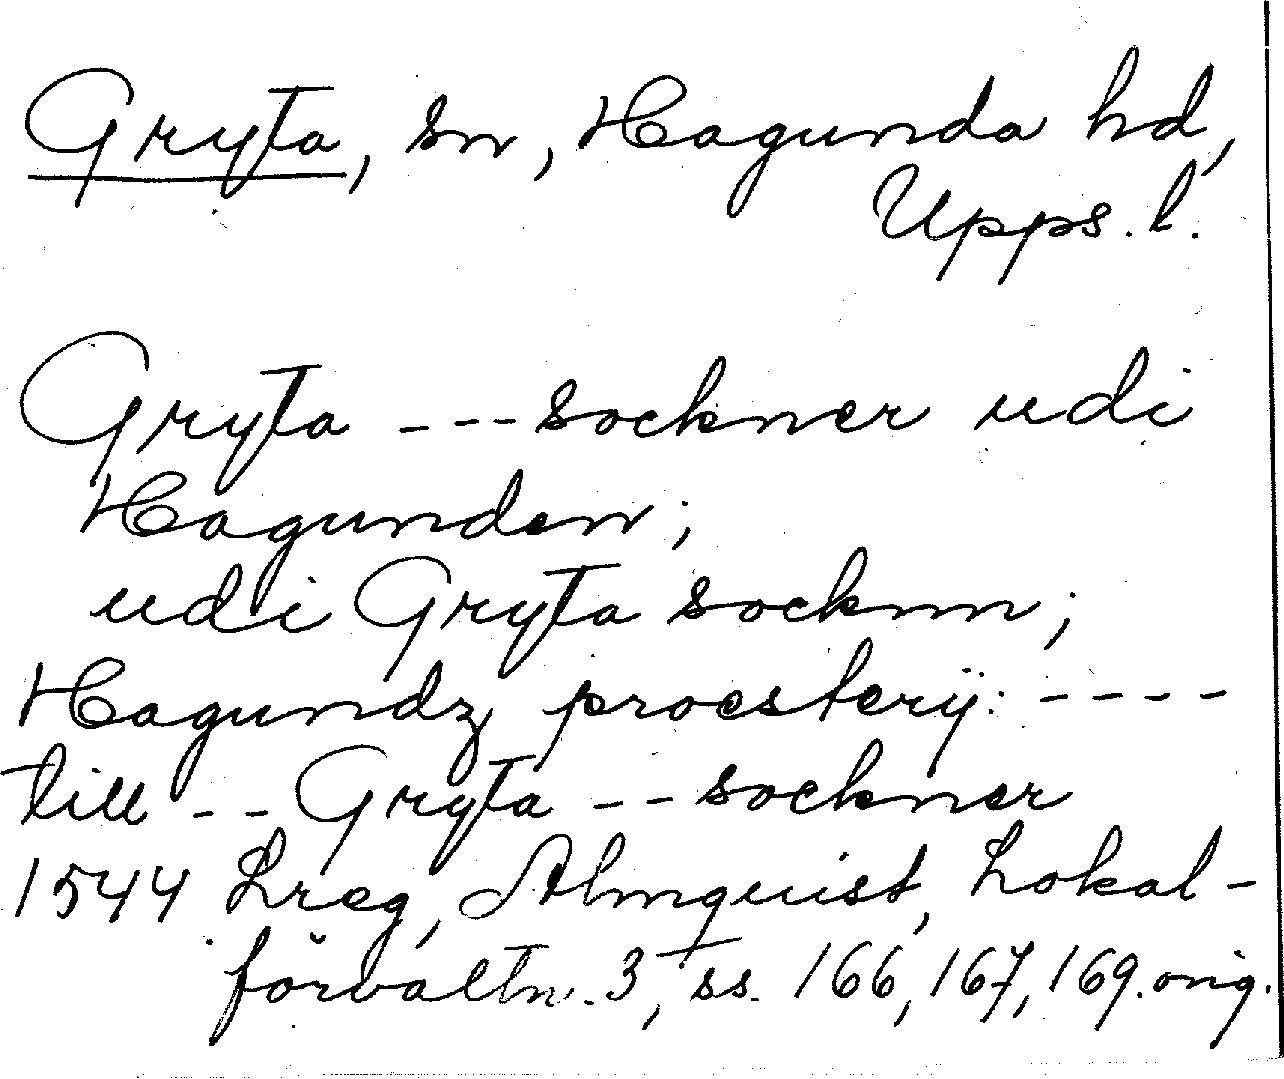 Gryta, sn, Hagunda hd,
Upps. l.
Gryta --- sockner udi
Hagunden;
udi Gryta socknn;
Hagundz proesterij: ----
till -- Gryta -- sockner
1544 Lreg, Almquist, Lokal-
förvaltn. 3, ss. 166, 167, 169. orig.